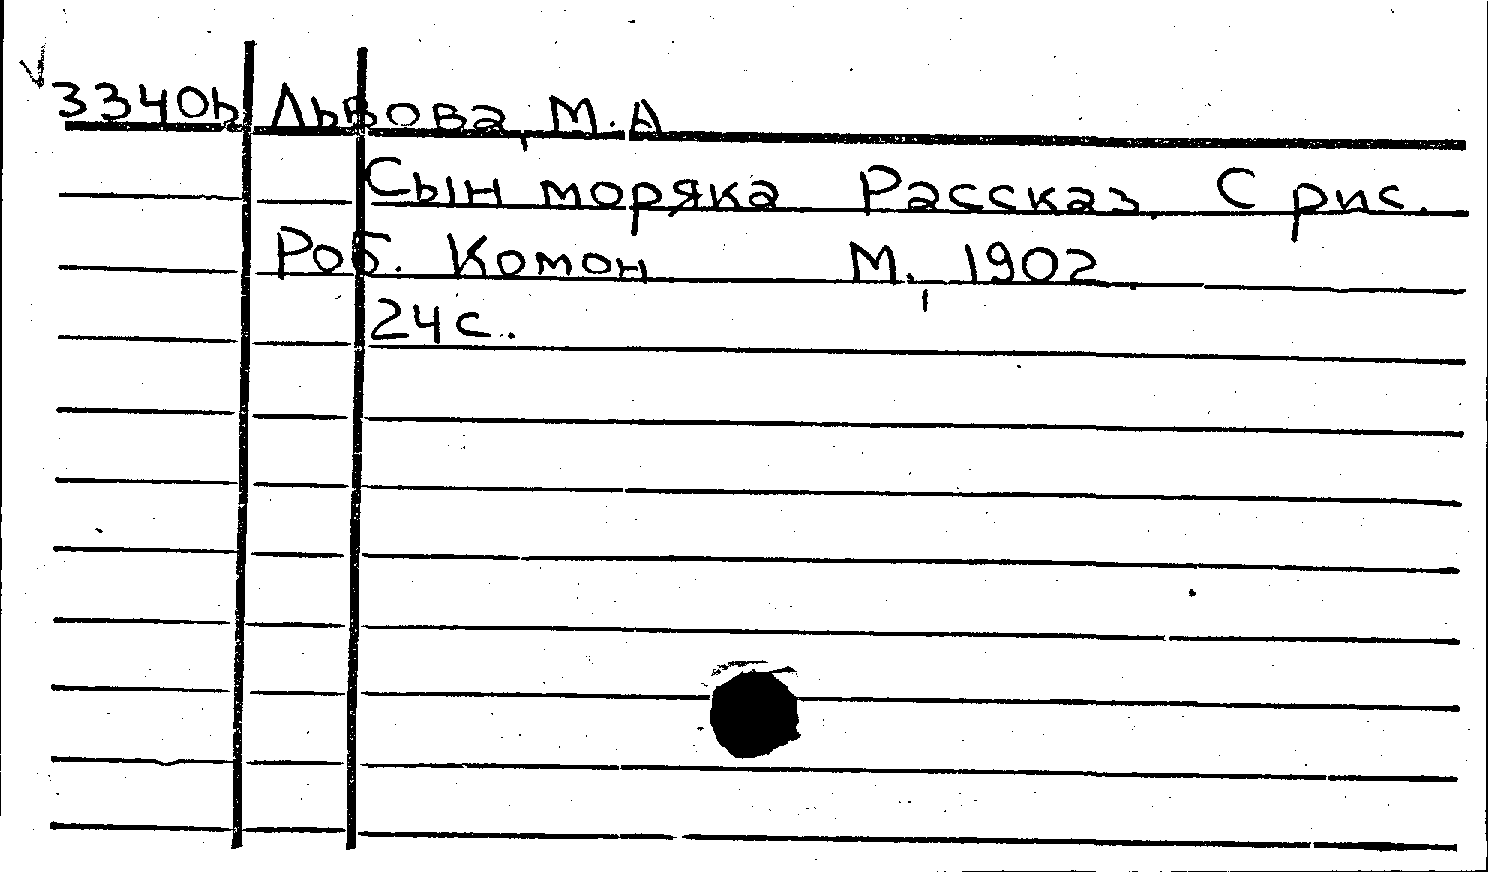 3340ь Львова, М.А
Сын моряка Рассказ. С рис.
Роб. Комон М., 1902
24 с.